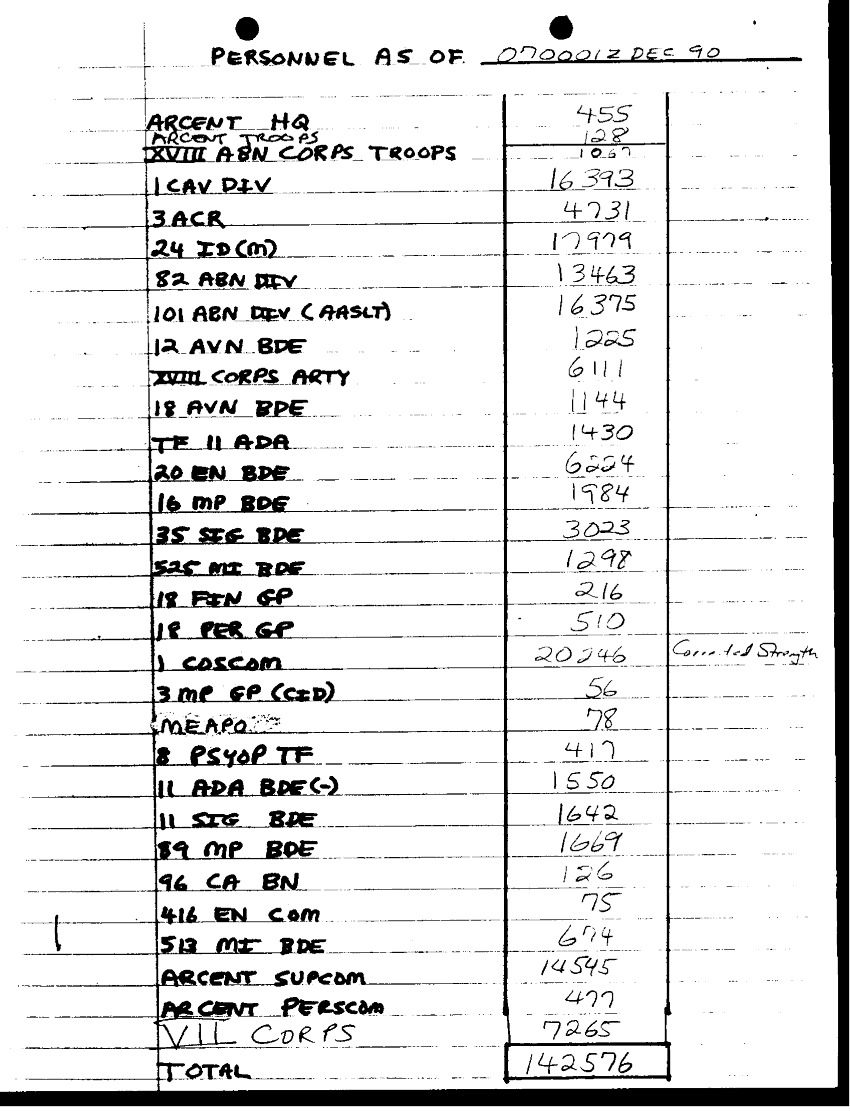 PERSONNEL AS OF 070001Z DEC 90
ARCENT HQ 455
ARCENT TROOPS 128
XVIII ABN CORPS TROOPS 1067
1 CAV DIV 16393
3 ACR 4731
24 ID(M) 17979
82 ABN DIV 13463
101 ABN DIV (AASLT) 16375
12 AVN BDE 1225
XVIII CORPS ARTY 6111
18 AVN BDE 1144
TF 11 ADA 1430
20 EN BDE 6224
16 MP BDE 1984
35 SIG BDE 3023
525 MI BDE 1298
18 FIN GP 216
18 PER GP 510
1 COSCOM 20246 Corrected Strength
3 MP GP (CID) 56
MEAPO 78
8 PSYOP TF 417
11 ADA BDE(-) 1550
11 SIG BDE 1642
89 MP BDE 1669
96 CA BN 126
416 EN COM 75
513 MI BDE 674
ARCENT SUPCOM 14545
ARCENT PERSCOM 477
VII CORPS 7265
TOTAL 142576